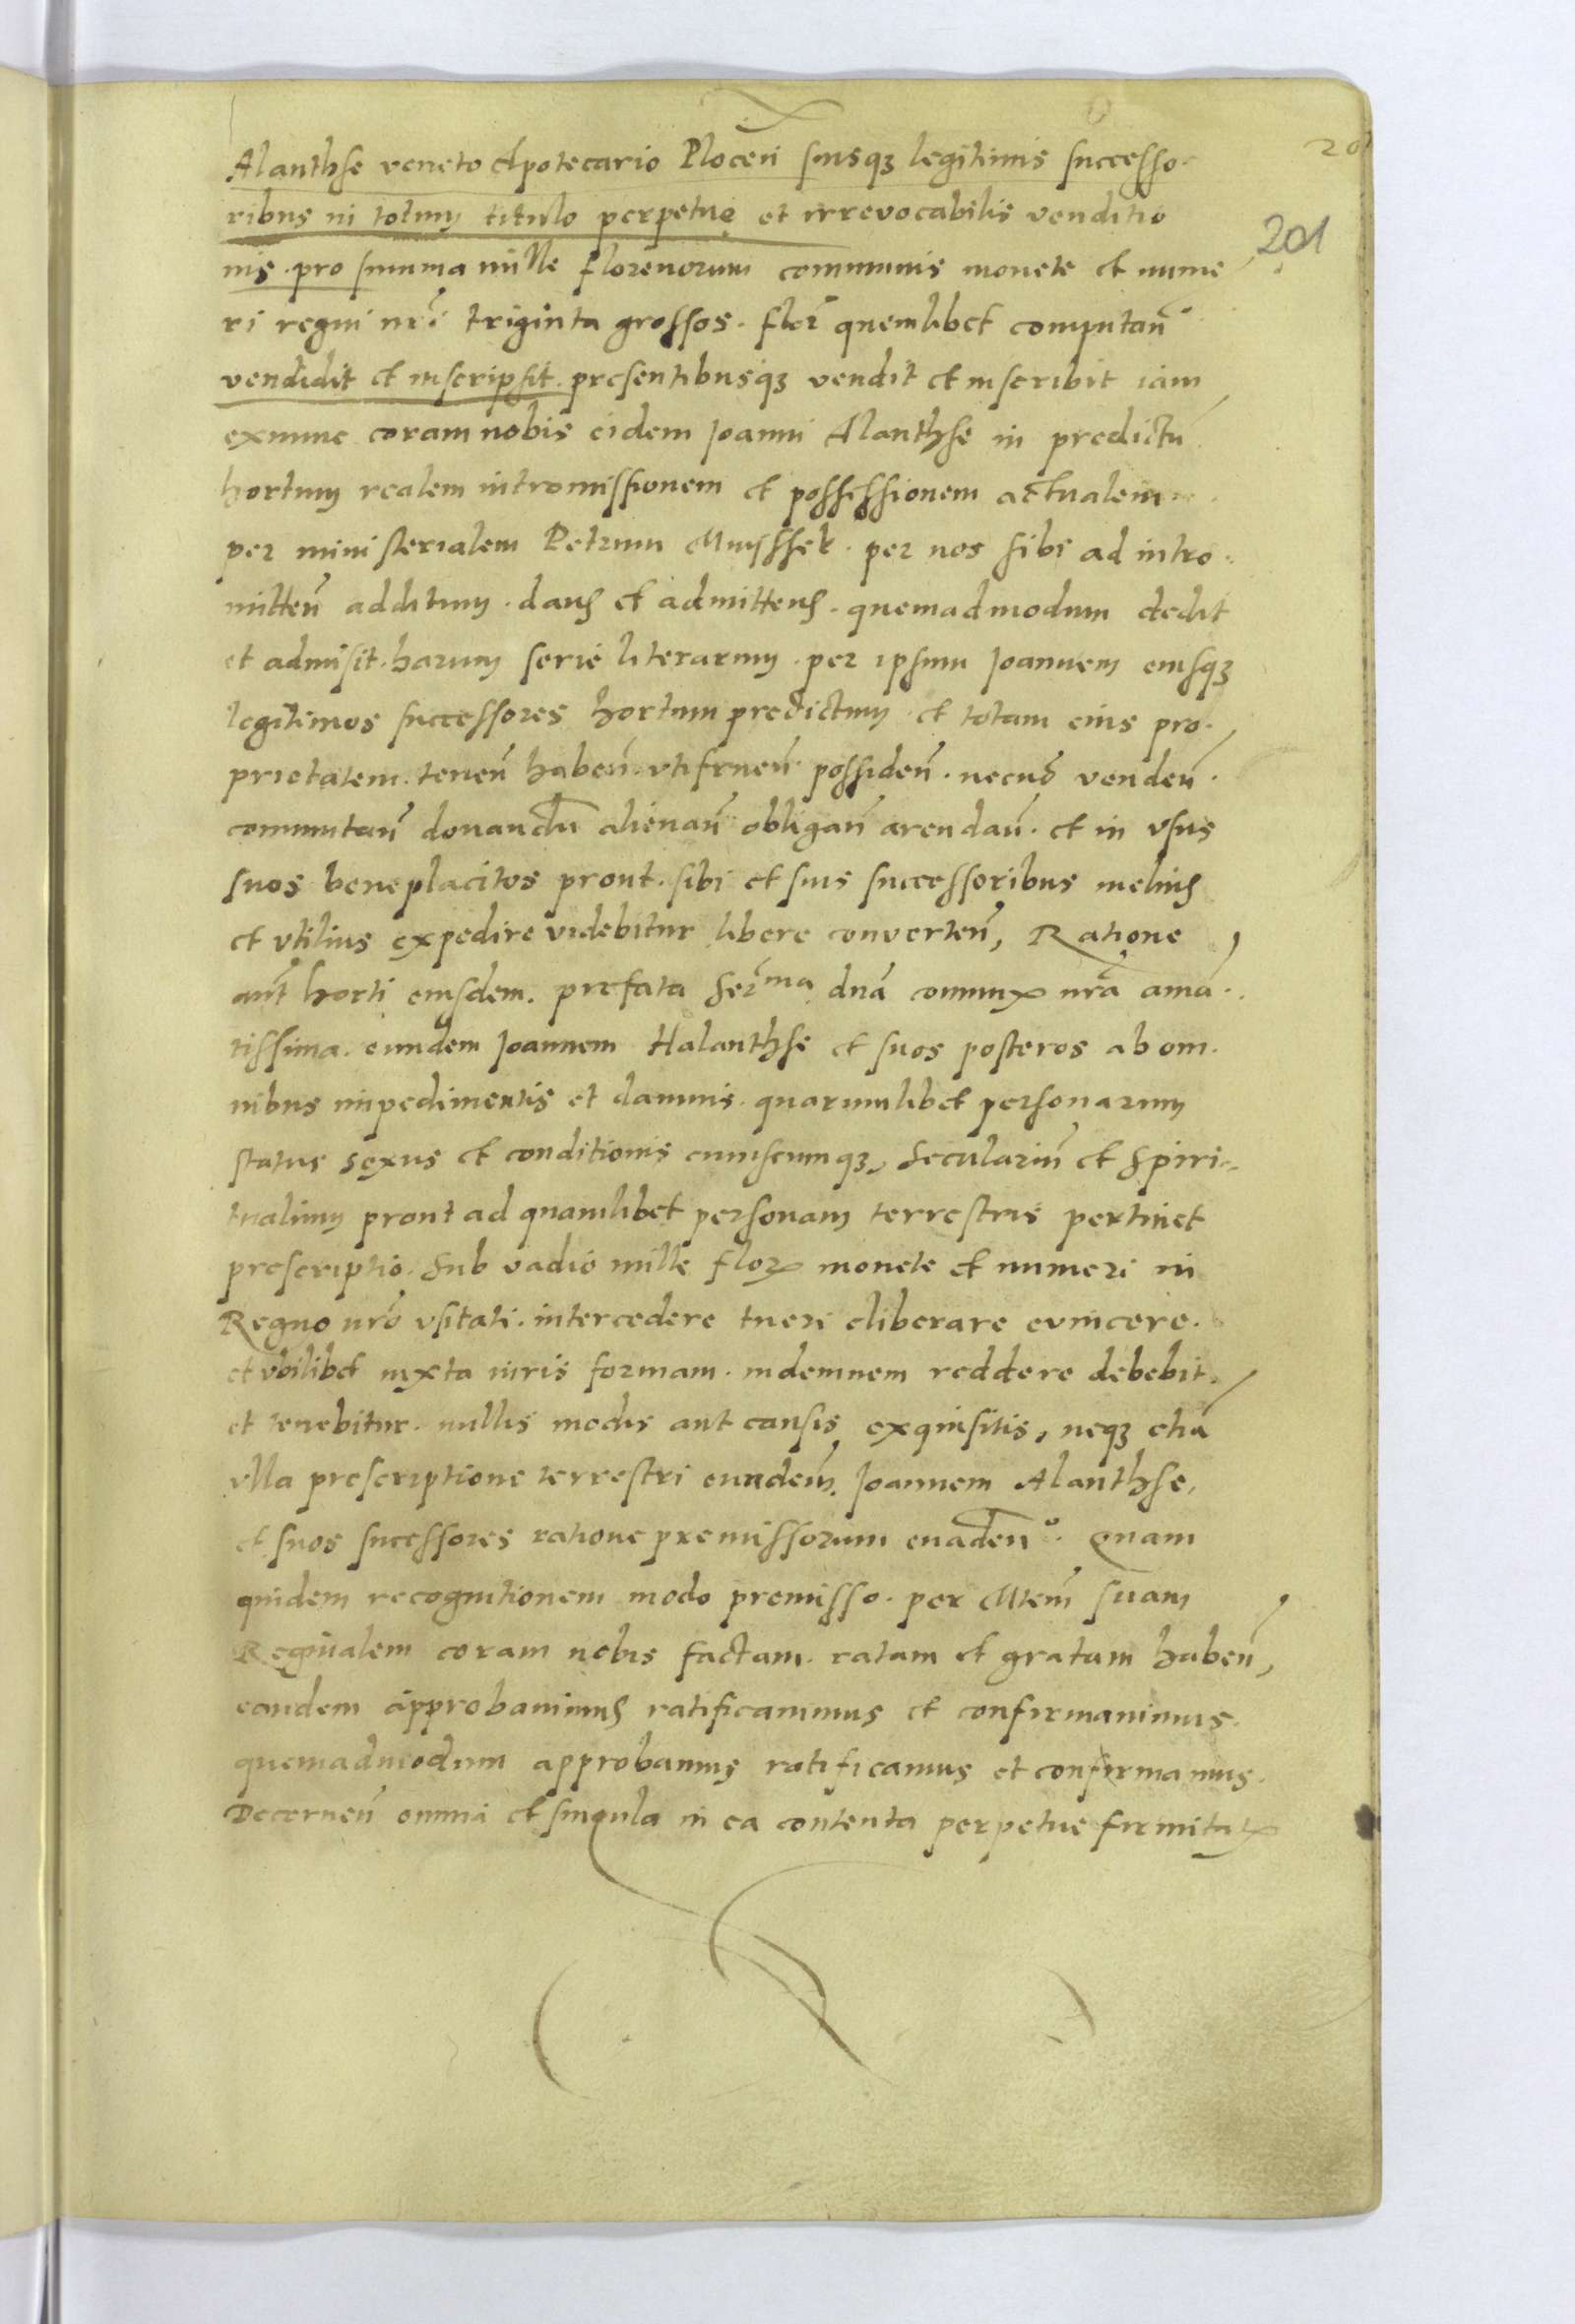 201
201
Alanthse veneto Apotecario Plocen̄ suisqꝫ legitimis successo-
ribus in totum titulo perpetuę et irrevocabilis venditio
nis. pro summa mille florenorum communis monete et nume
ri regni nr̄i triginta grossos. flor̄ quemlibet computan̄
vendidit et inscripsit. presentibusqꝫ vendit et inscribit iam
exnunc coram nobis eidem Joanni Alanthse in predictū
hortum realem intromissionem et possessionem actualem
per ministerialem Petrum Mnyssek. per nos sibi ad intro.
mitten̄ additum. dans et admittens. quemadmodum dedit
et admisit. harum serie literarum. per ipsum Joannem eiusqꝫ
legitimos successores hortum predictum et totam eius pro.
prietatem. tenen̄ haben̄ utifruen̄ possiden̄. necnō venden̄.
commutan̄ donandū alienan̄ obligan̄ arendan̄. et in vsus
suos beneplacitos prout. sibi et suis successoribus melius
et vtilius expedire videbitur libere converten̄, Ratione
aut̄ horti eiusdem. prefata Ser̄ma dnā coniunx nrā amā.
tissima. eundem Joannem Halanthse et suos posteros ab om.
nibus impedimentis et damnis. quarumlibet personarum
status sexus et conditionis cuiuscumqꝫ, Seculariū et Spiri-
tualium prout ad quamlibet personam terrestris pertinet
prescriptio. Sub vadio mille floꝝ monete et numeri in
Regno nrō vsitati. intercedere tueri eliberare evincere.
et vbilibet iuxta iuris formam. indemnem reddere debebit.
et tenebitur. nullis modis aut causis exquisitis, neqꝫ etiā
vlla prescriptione terrestri eundem̄. Joannem Alanthse,
et suos successores ratione premissorum evaden̄o. Quam
quidem recognitionem modo premisso. per Mtem̄ suam
Reginalem coram nobis factam. ratam et gratam haben̄,
eandem approbavimus ratificavimus et confirmavimus.
quemadmodum approbamus ratificamus et confirmamus.
Decernen̄ omnia et singula in ea contenta perpetue firmitatꝫ